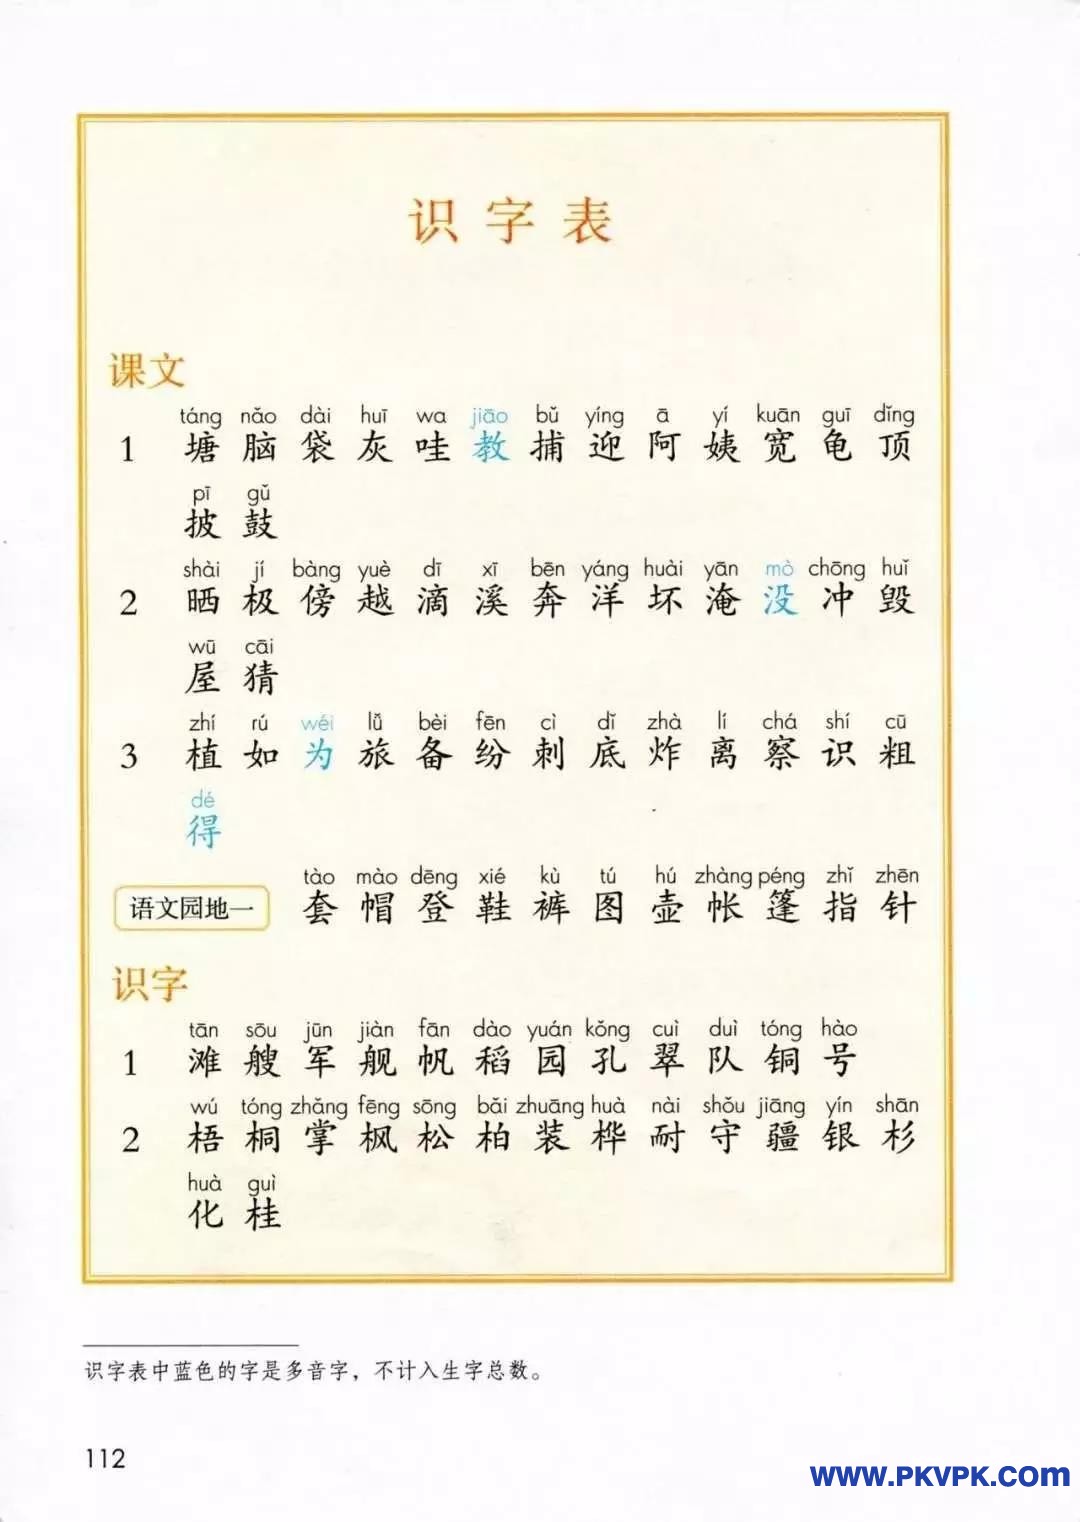 识字表
课文
táng nǎo dài huī wa jiāo bǔ yíng ā yí kuān guī dǐng
1 塘 脑 袋 灰 哇 教 捕 迎 阿 姨 宽 龟 顶
pī gǔ
披 鼓
shài jí bàng yuè dī xī bēn yáng huài yān mò chōng huǐ
2 晒 极 傍 越 滴 溪 奔 洋 坏 淹 没 冲 毁
wū cāi
屋 猜
zhí rú wéi lǚ bèi fēn cì dǐ zhà lí chá shí cū
3 植 如 为 旅 备 纷 刺 底 炸 离 察 识 粗
dé
得
tào mào dēng xié kù tú hú zhàng péng zhǐ zhēn
语文园地一 套 帽 登 鞋 裤 图 壶 帐 篷 指 针
识字
tān sōu jūn jiàn fān dào yuán kǒng cuì duì tóng hào
1 滩 艘 军 舰 帆 稻 园 孔 翠 队 铜 号
wú tóng zhǎng fēng sōng bǎi zhuāng huà nài shǒu jiāng yín shān
2 梧 桐 掌 枫 松 柏 装 桦 耐 守 疆 银 杉
huà guì
化 桂
识字表中蓝色的字是多音字，不计入生字总数。
112
WWW.PKVPK.COM